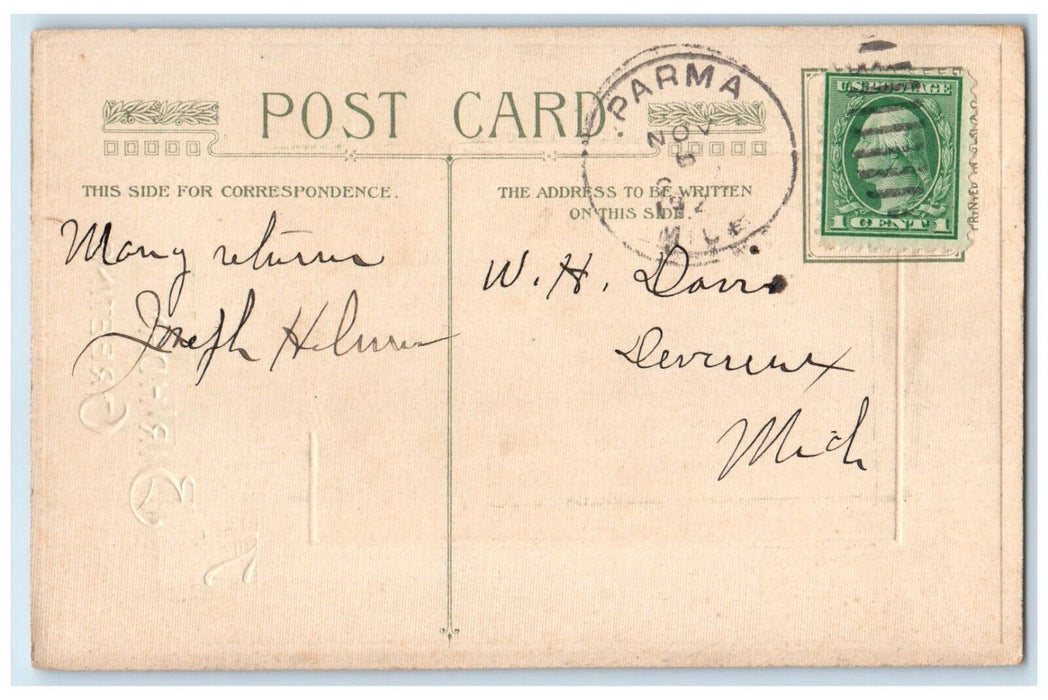 POST CARD.
THIS SIDE FOR CORRESPONDENCE.
THE ADDRESS TO BE WRITTEN
ON THIS SIDE.
PARMA
NOV
MICH
U.S. POSTAGE
1 CENT 1
Many returns
Joseph Helmer
W. H. Davis
Devereux
Mich